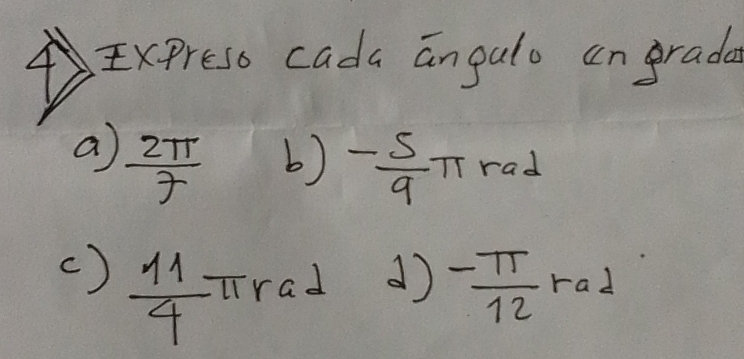 4) Expreso cada ángulo en grados
a) 2π/7 b) -5/9 π rad
c) 11/4 π rad d) -π/12 rad